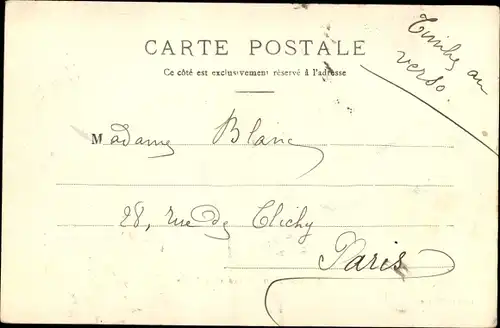 CARTE POSTALE
Ce côté est exclusivement réservé à l'adresse
Timbre au
verso.
Madame Blanc
28, rue de Clichy
Paris